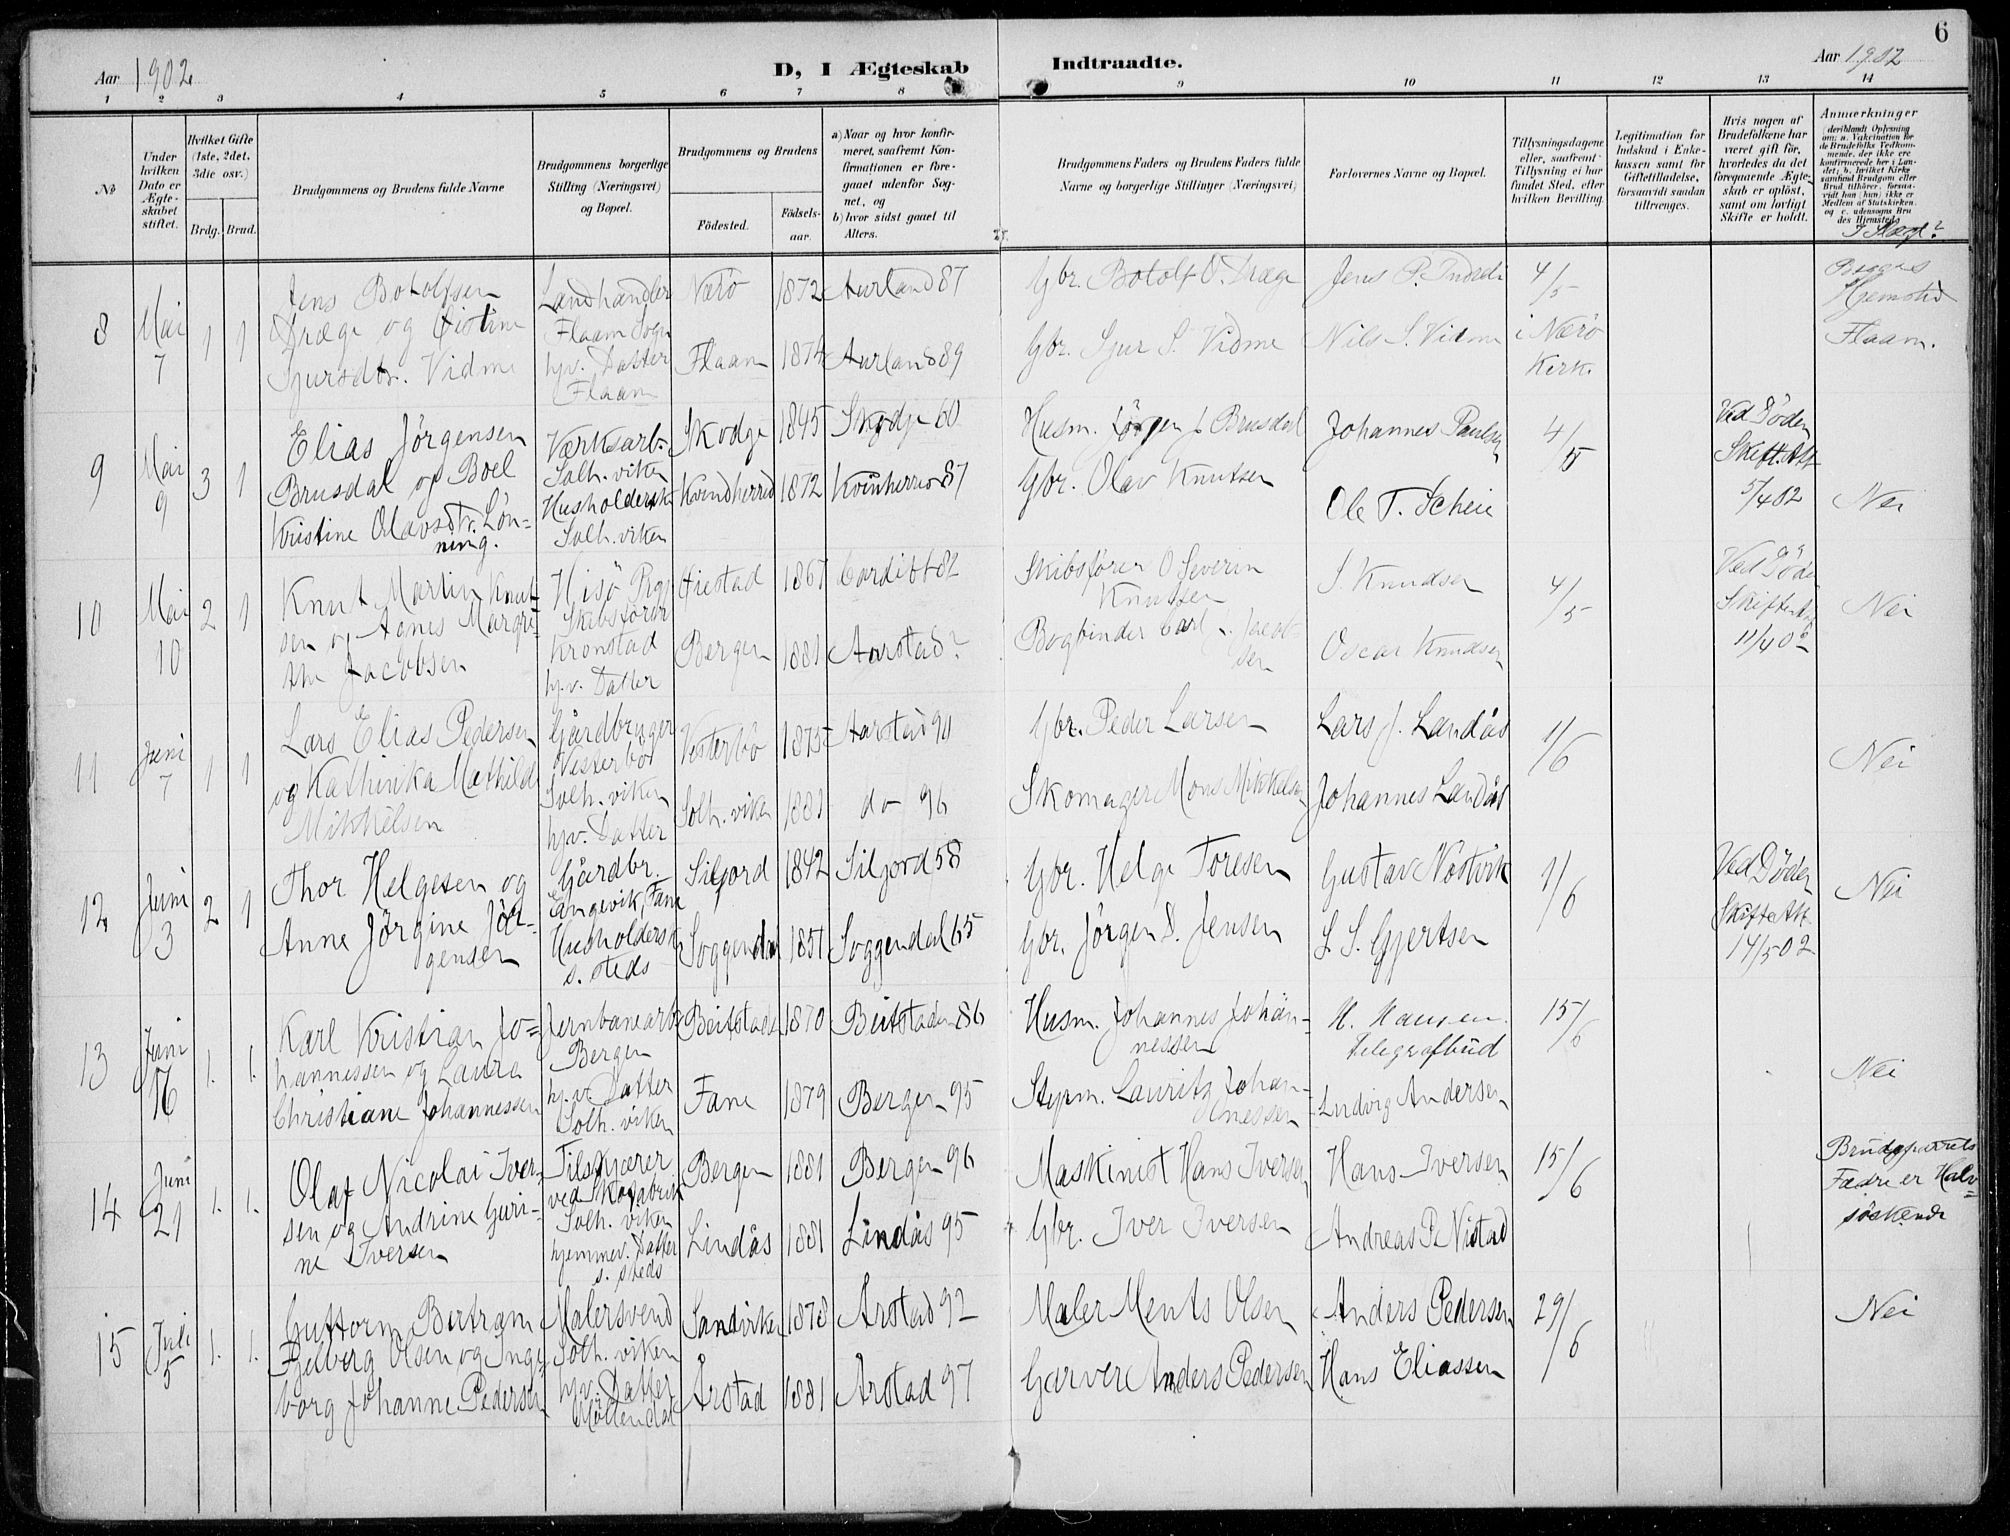 6
Aar 1902
D, I Ægteskab Indtraadte.
Aar 1902
1 2 3 4 5 6 7 8 9 10 11 12 13 14
No
Under hvilken Dato er Ægteskabet stiftet.
Hvilket Gifte (1ste, 2det, 3die osv.)
Brdg. Brud.
Brudgommens og Brudens fulde Navne
Brudgommens borgerlige Stilling (Næringsvei) og Bopæl.
Brudgommens og Brudens
Födested. Födsels-aar.
a) Naar og hvor konfirmeret, saafremt Konfirmationen er foregaaet udenfor Sognet, og
b) hvor sidst gaaet til Alters.
Brudgommens Faders og Brudens Faders fulde Navne og borgerlige Stillinger (Næringsvei)
Forlovernes Navne og Bopæl.
Tillysningsdagene eller, saafremt Tillysning ei har fundet Sted, efter hvilken Bevilling.
Legitimation for Indskud i Enkekassen samt for Giftetilladelse, forsaavidt saadan tiltrænges.
Hvis nogen af Brudefolkene har været gift för, hvorledes da det foregaaende Ægteskab er oplöst, samt om lovligt Skifte er holdt.
Anmærkninger
I Slægt?
8
Mai
7
1 1
Jens Botolfsen
Dræge og Kistine
Sjursdtr. Vidme
Landhandler
Flaam Sogn
hjv. Datter
Flaam
Nærö 1872 Aurland 87
Flaam 1874 Aurland 89
Gbr. Botolf O. Dræge
Gbr. Sjur S. Vidme
Jens P. Indreli
Nils S. Vidme
4/5
i Nærö
Kirk.
Begges
Hjemsted
Flaam.
9
Mai
9
3 1
Elias Jörgensen
Brusdal og Boel
Kristine Olavsdtr. Lön=
ning.
Værksarb.
Solh.viken
Husholdersk
Solh.viken
Skodje 1845 Skodje 60
Kvindherred 1872 Kvinherred 87
Husm. Jörgen J. Brusdal
Gbr. Olav Knutsen
Johannes Paulsen
Ole T. Scheie
4/5
Ved Döden
Skift. Att
5/4 02
Nei
10
Mai
10
2 1
Knut Martin Knut-
sen og Agnes Margre-
the Jacobsen
Hisö Prg
Skibsförer
Kronstad
hjv. Datter
Öiestad 1867 Cardiff 82
Bergen 1881 Aarstad?
Skibsförer O Severin
Knutsen
Bogbinder Carl Jacob-
sen
S. Knudsen
Oscar Knudsen
4/5
Ved Döden
Skifte Att
11/4 02
Nei
11
Juni
7
1 1
Lars Elias Pedersen
og Kathinka Mathilde
Mikkelsen
Gårdbruger
Vesterbö
Solh.viken
hjv. Datter
Vesterbö 1875 Aarstad 90
Solh.viken 1881 do 96
Gbr. Peder Larsen
Skomager Mons Mikkelsen
Lars J. Landås
Johannes Landås
1/6
Nei
12
Juni
3
2 1
Thor Helgesen og
Anne Jörgine Jör-
gensen
Gårdbr.
Langevik, Fane
Husholdersk
s. steds
Siljord 1842 Siljord 58
Soggendal 1851 Soggendal 65
Gbr. Helge Toresen
Gbr. Jörgen S. Jensen
Gustav Nöstvik
S. S. Gjertsen
1/6
Ved Döden
Skifte Att
14/5 02
Nei
13
Juni
16
1. 1.
Karl Kristian Jo=
hannessen og Laura
Christiane Johannessen
Jernbanearb
Bergen
hj.v. Datter
Solh.viken
Beitstaden 1870 Beitstaden 86
Fane 1879 Bergen 95
Husm. Johannes Johan-
nessen
Styrm. Lauritz Johan-
nessen
H. Hansen
telegrafbud
Ludvig Andersen
15/6
Nei
14
Juni
21
1. 1.
Olaf Nicolai Iver-
sen og Andrine Guri-
ne Iversen
Tilskjærer
ved Skofabrik
Solh.viken
hjemmev. Datter
s. steds
Bergen 1881 Bergen 96
Lindås 1881 Lindås 95
Maskinist Hans Iversen
Gbr. Iver Iversen
Hans Iversen
Andreas P. Nistad
15/6
Brudeparrets
Fædre er Halv=
söskende
15
Juli
5
1. 1.
Guttorm Bertram
Fjelberg Olsen og Inge
borg Johanne Pedersen
Malersvend
Solh.viken
hjv. Datter
Möllendal
Sandviken 1878 Årstad 92
Årstad 1881 Årstad 97
Maler Ments Olsen
Garver Anders Pedersen
Anders Pedersen
Hans Eliassen
29/6
Nei